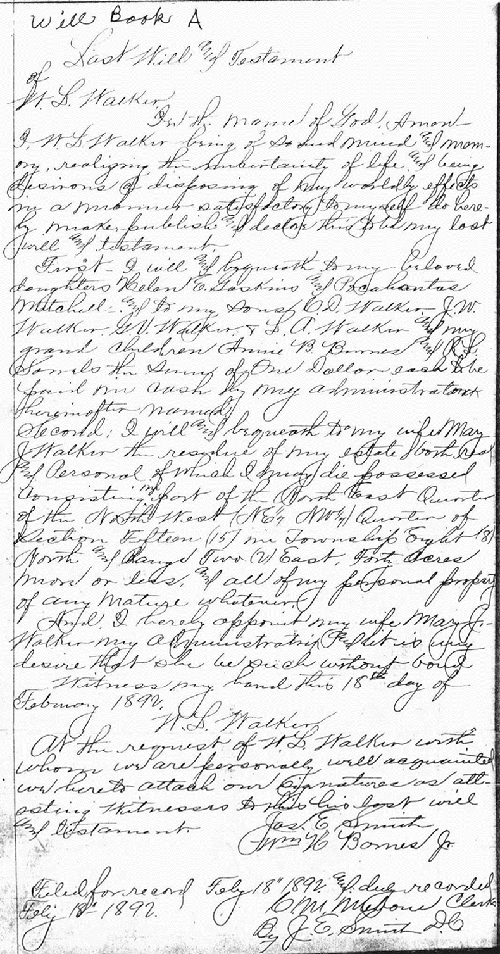 Will Book A
Last Will and Testament
of
W. L. Walker
In the name of God, Amen
I W L Walker being of sound mind and mem-
ory, realizing the uncertainty of life and being
desirous of disposing of my worldly effects
in a manner satisfactory to myself do here-
by make, publish and declare this to be my last
will and testament.
First - I will and bequeath to my beloved
daughters Helen E. Gaskins and Pocahontas
Mitchell - and to my sons, C. D. Walker, J. W.
Walker, G. V. Walker, & L. A. Walker and my
grand children Annie B Barnes and R. L.
the sum of One Dollar each to be
paid in cash by my administratrix
hereinafter named;
Second; I will and bequeath to my wife Mary
J Walker the residue of my estate both real
and Personal of which I may die possessed
consisting in part of the North East Quarter
of the North West (NE¼ NW¼) Quarter of
Section Fifteen (15) in Township Eight (8)
North and Range Two (2) East, Forty Acres
more or less, and all of my personal property
of any nature whatever.
And, I hereby appoint my wife Mary J.
Walker my Administratrix and it is my
desire that she be such without bond
Witness my hand this 18th day of
February 1892.
W. L. Walker
At the request of W L Walker with
whom we are personally well acquainted
we hereto attach our signatures as att-
esting Witnesses to his last will
and testament
Jas. E. Smith
Wm H Barnes Jr
Filed for record Feby 18th 1892 and duly recorded
Feby 18th 1892.
Clerk
By J. E. Smith D.C.